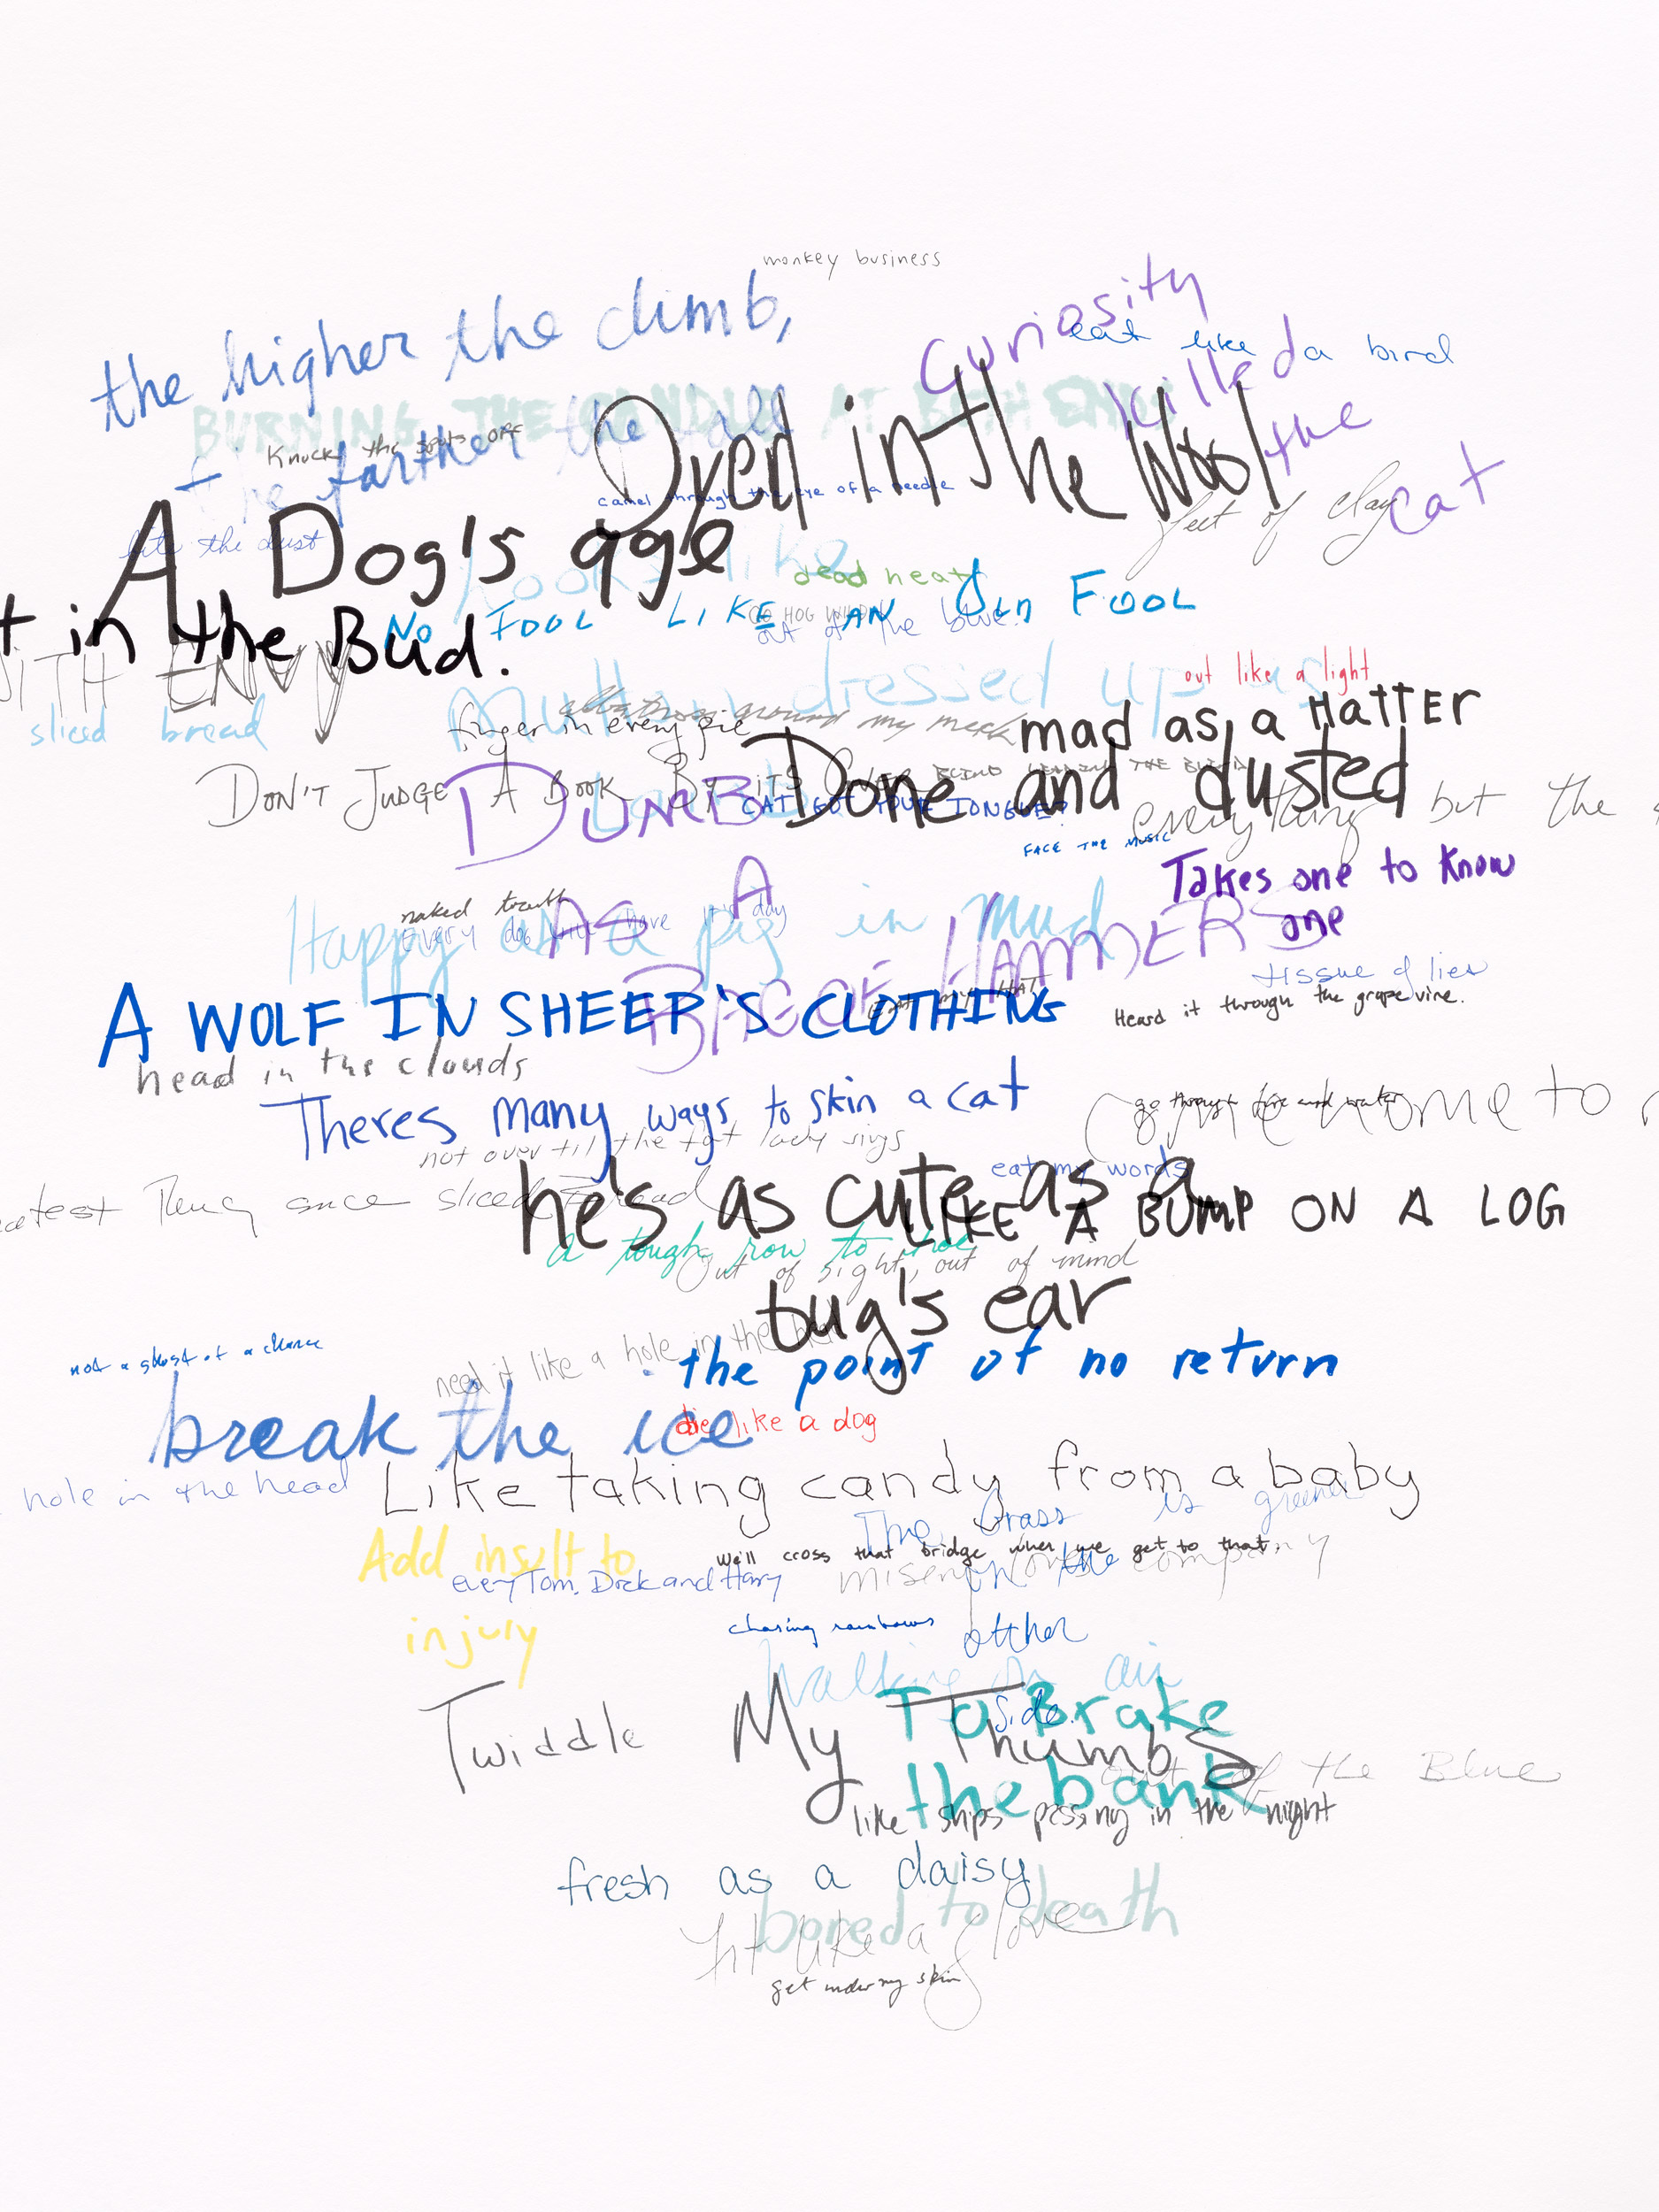 monkey business
the higher the climb,
the farther the fall
Curiosity
killed
the
cat
eat like a bird
BURNING THE CANDLE AT BOTH ENDS
Knock the spots off
Dyed in the Wool
camel through the eye of a needle
feet of clay
A Dog's age
bite the dust
looks like
dead heat
NO FOOL LIKE AN OLD FOOL
GO HOG WILD
out of the blue.
t in the Bud.
WITH ENVY
sliced bread
Mutton dressed up as
Lamb
out like a light
albatross around my neck
finger in every pie
mad as a HATTER
Done and dusted
BLIND LEADING THE BLIND
DON'T JUDGE A BOOK BY ITS COVER
DUMB
AS A
BAG OF HAMMERS
CAT GOT YOUR TONGUE?
everything but the
FACE THE MUSIC
Takes one to know
one
naked truth
Every dog will have it's day
Happy as a pig in mud
tissue of lies
EAT MY HAT
A WOLF IN SHEEP'S CLOTHING
Heard it through the grapevine.
head in the clouds
Theres many ways to skin a cat
go through fire and water
come to
not over til the fat lady sings
eat my words
eatest thing since sliced bread
he's as cute as a
bug's ear
LIKE A BUMP ON A LOG
a tough row to hoe
Out of sight, out of mind
not a ghost of a chance
need it like a hole in the head
the point of no return
break the ice
die like a dog
hole in the head
Like taking candy from a baby
The Grass is greener
on the
other
side.
Add insult to
injury
We'll cross that bridge when we get to that.
every Tom, Dick and Harry
misery loves company
chasing rainbows
Walking on air
Twiddle My Thumbs
To Brake
the bank
out of the Blue
like ships passing in the night
fresh as a daisy
bored to death
fit like a glove
get under my skin